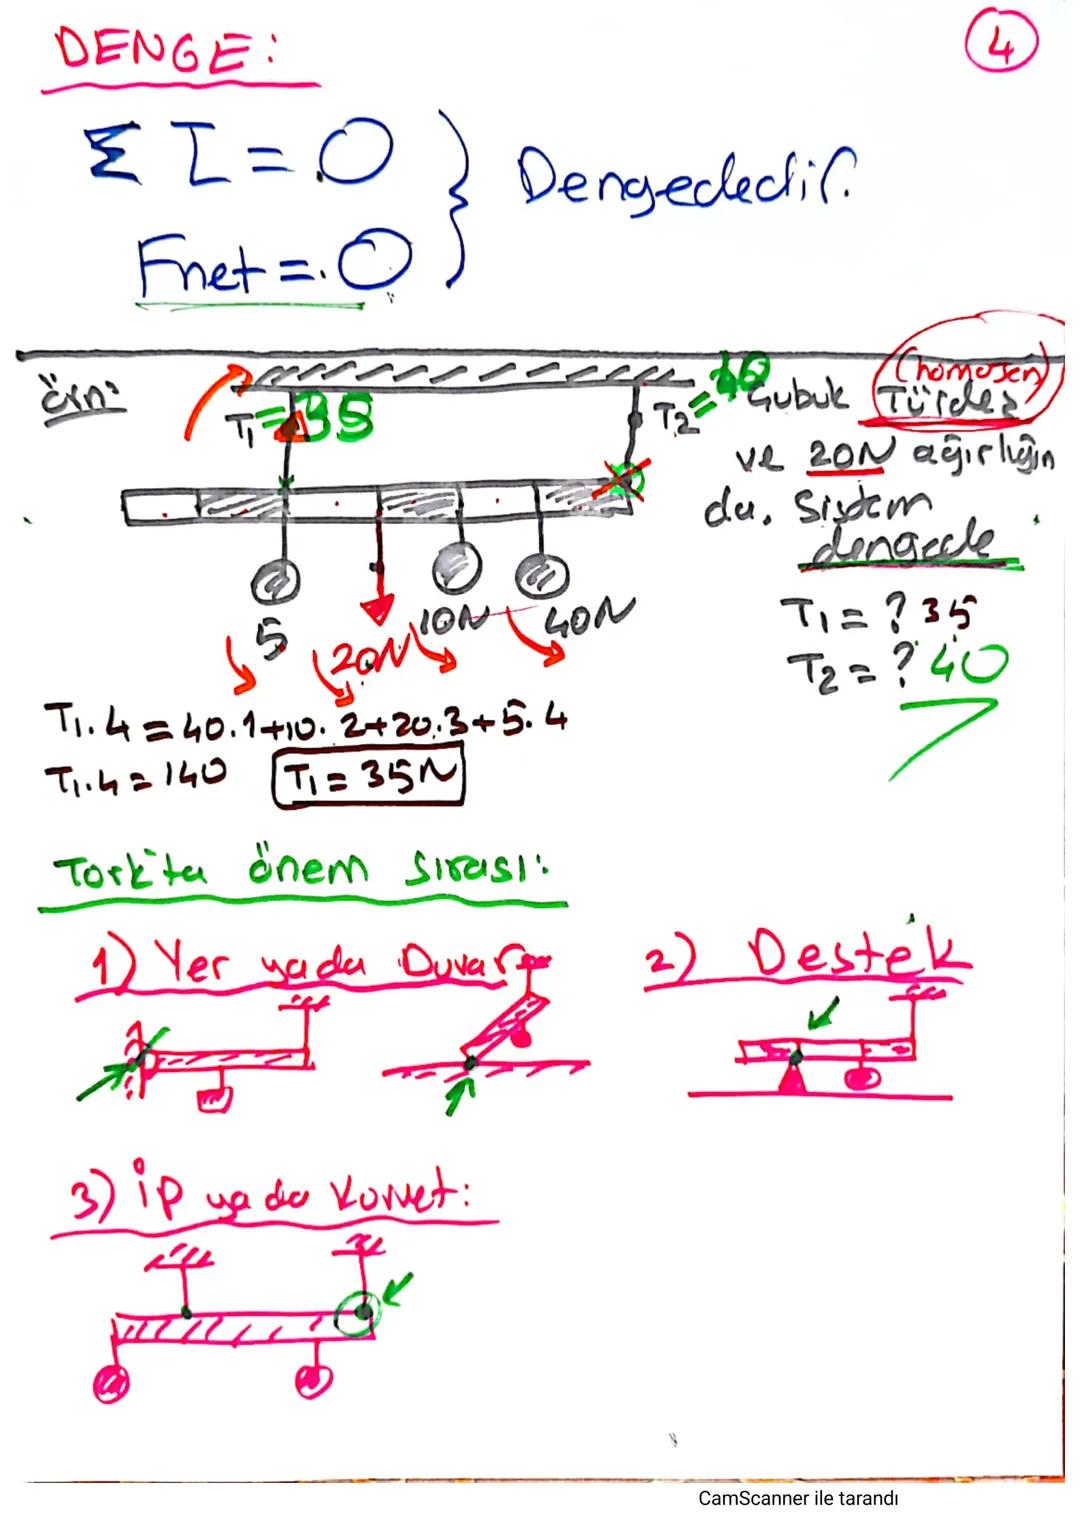 DENGE:
4
Σ τ = 0
Fnet = 0
Dengededir.
örn:
T₁ = 35
T₂ = 40
Çubuk (homojen)
Türdeş
ve 20N ağırlığın
da. Sistem
dengede
5
20N
10N
40N
T₁ = ? 35
T₂ = ? 40
T₁.4 = 40.1+10.2+20.3+5.4
T₁.4 = 140
T₁ = 35N
Tork'ta önem sırası:
1) Yer yada Duvar
2) Destek
3) İp yada Kuvvet:
CamScanner ile tarandı